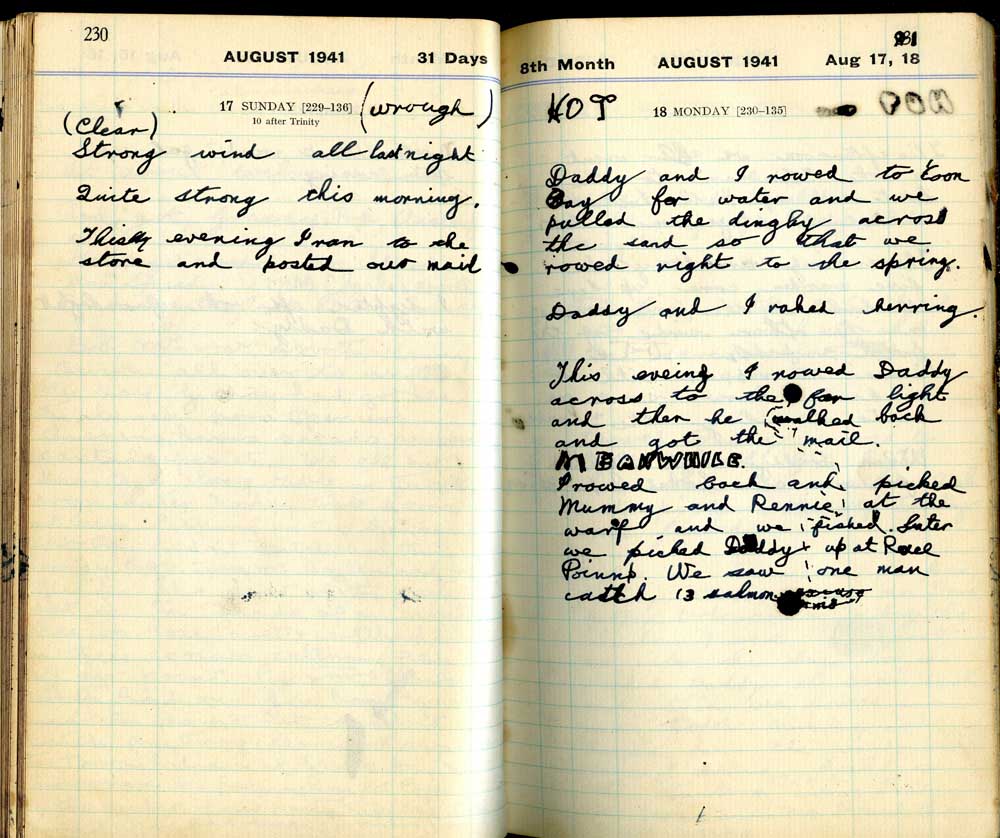 230
AUGUST 1941 31 Days
17 SUNDAY [229–136] (wrough)
10 after Trinity
(Clear)
Strong wind all last night
Quite strong this morning.
This evening I ran to the
store and posted our mail
231
8th Month AUGUST 1941 Aug 17, 18
HOT 18 MONDAY [230–135]
Daddy and I rowed to Coon
Bay for water and we
pulled the dinghy across
the sand so that we
rowed right to the spring.
Daddy and I raked herring.
This eveing I rowed Daddy
across to the far light
and then he walked back
and got the mail.
MEANWHILE.
I rowed back and picked
Mummy and Rennie at the
warf and we fished. Later
we picked Daddy up at
Poinnt. We saw one man
catch 13 salmon